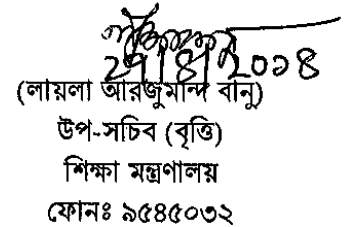 ২৭/৪/২০১৪
(লায়লা আরজুমান্দ বানু)
উপ-সচিব (বৃত্তি)
শিক্ষা মন্ত্রণালয়
ফোনঃ ৯৫৪৫০৩২